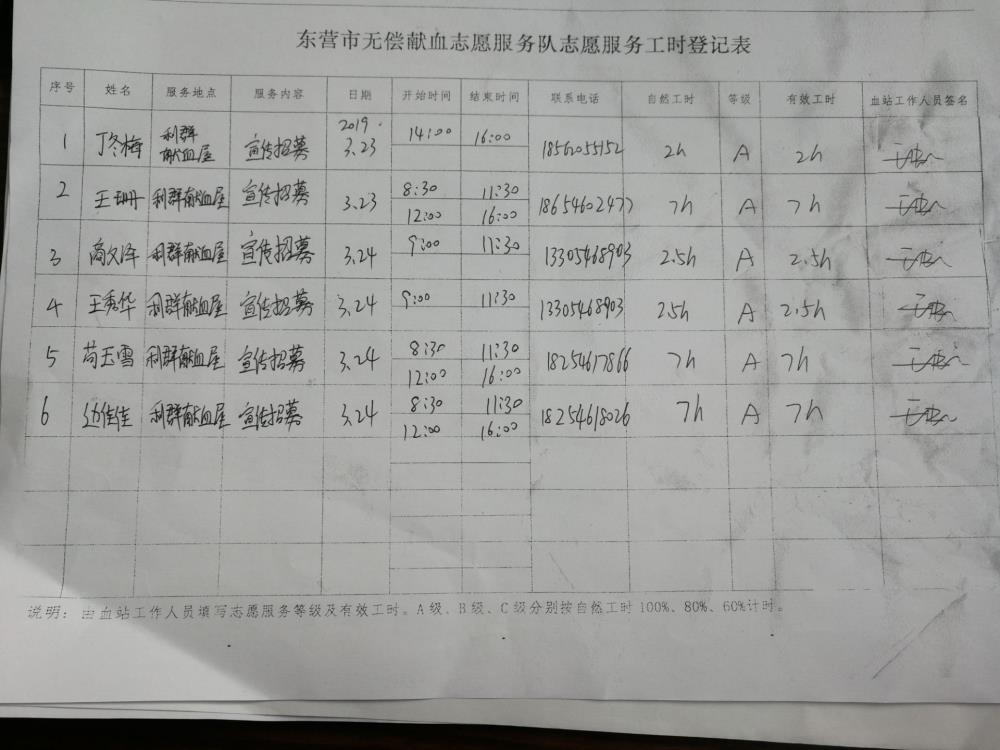 东营市无偿献血志愿服务队志愿服务工时登记表
序号 姓名 服务地点 服务内容 日期 开始时间 结束时间 联系电话 自然工时 等级 有效工时 血站工作人员签名
1 丁冬梅 利群献血屋 宣传招募 2019.3.23 14:00 16:00 18562055152 2h A 2h
2 王珊 利群献血屋 宣传招募 3.23 8:30 11:30 18654602477 7h A 7h
12:00 16:00
3 高文泽 利群献血屋 宣传招募 3.24 9:00 11:30 13305468903 2.5h A 2.5h
4 王秀华 利群献血屋 宣传招募 3.24 9:00 11:30 13305468903 2.5h A 2.5h
5 苟玉雪 利群献血屋 宣传招募 3.24 8:30 11:30 18254617866 7h A 7h
12:00 16:00
6 边佳佳 利群献血屋 宣传招募 3.24 8:30 11:30 18254618026 7h A 7h
12:00 16:00
说明：由血站工作人员填写志愿服务等级及有效工时。A级、B级、C级分别按自然工时100%、80%、60%计时。